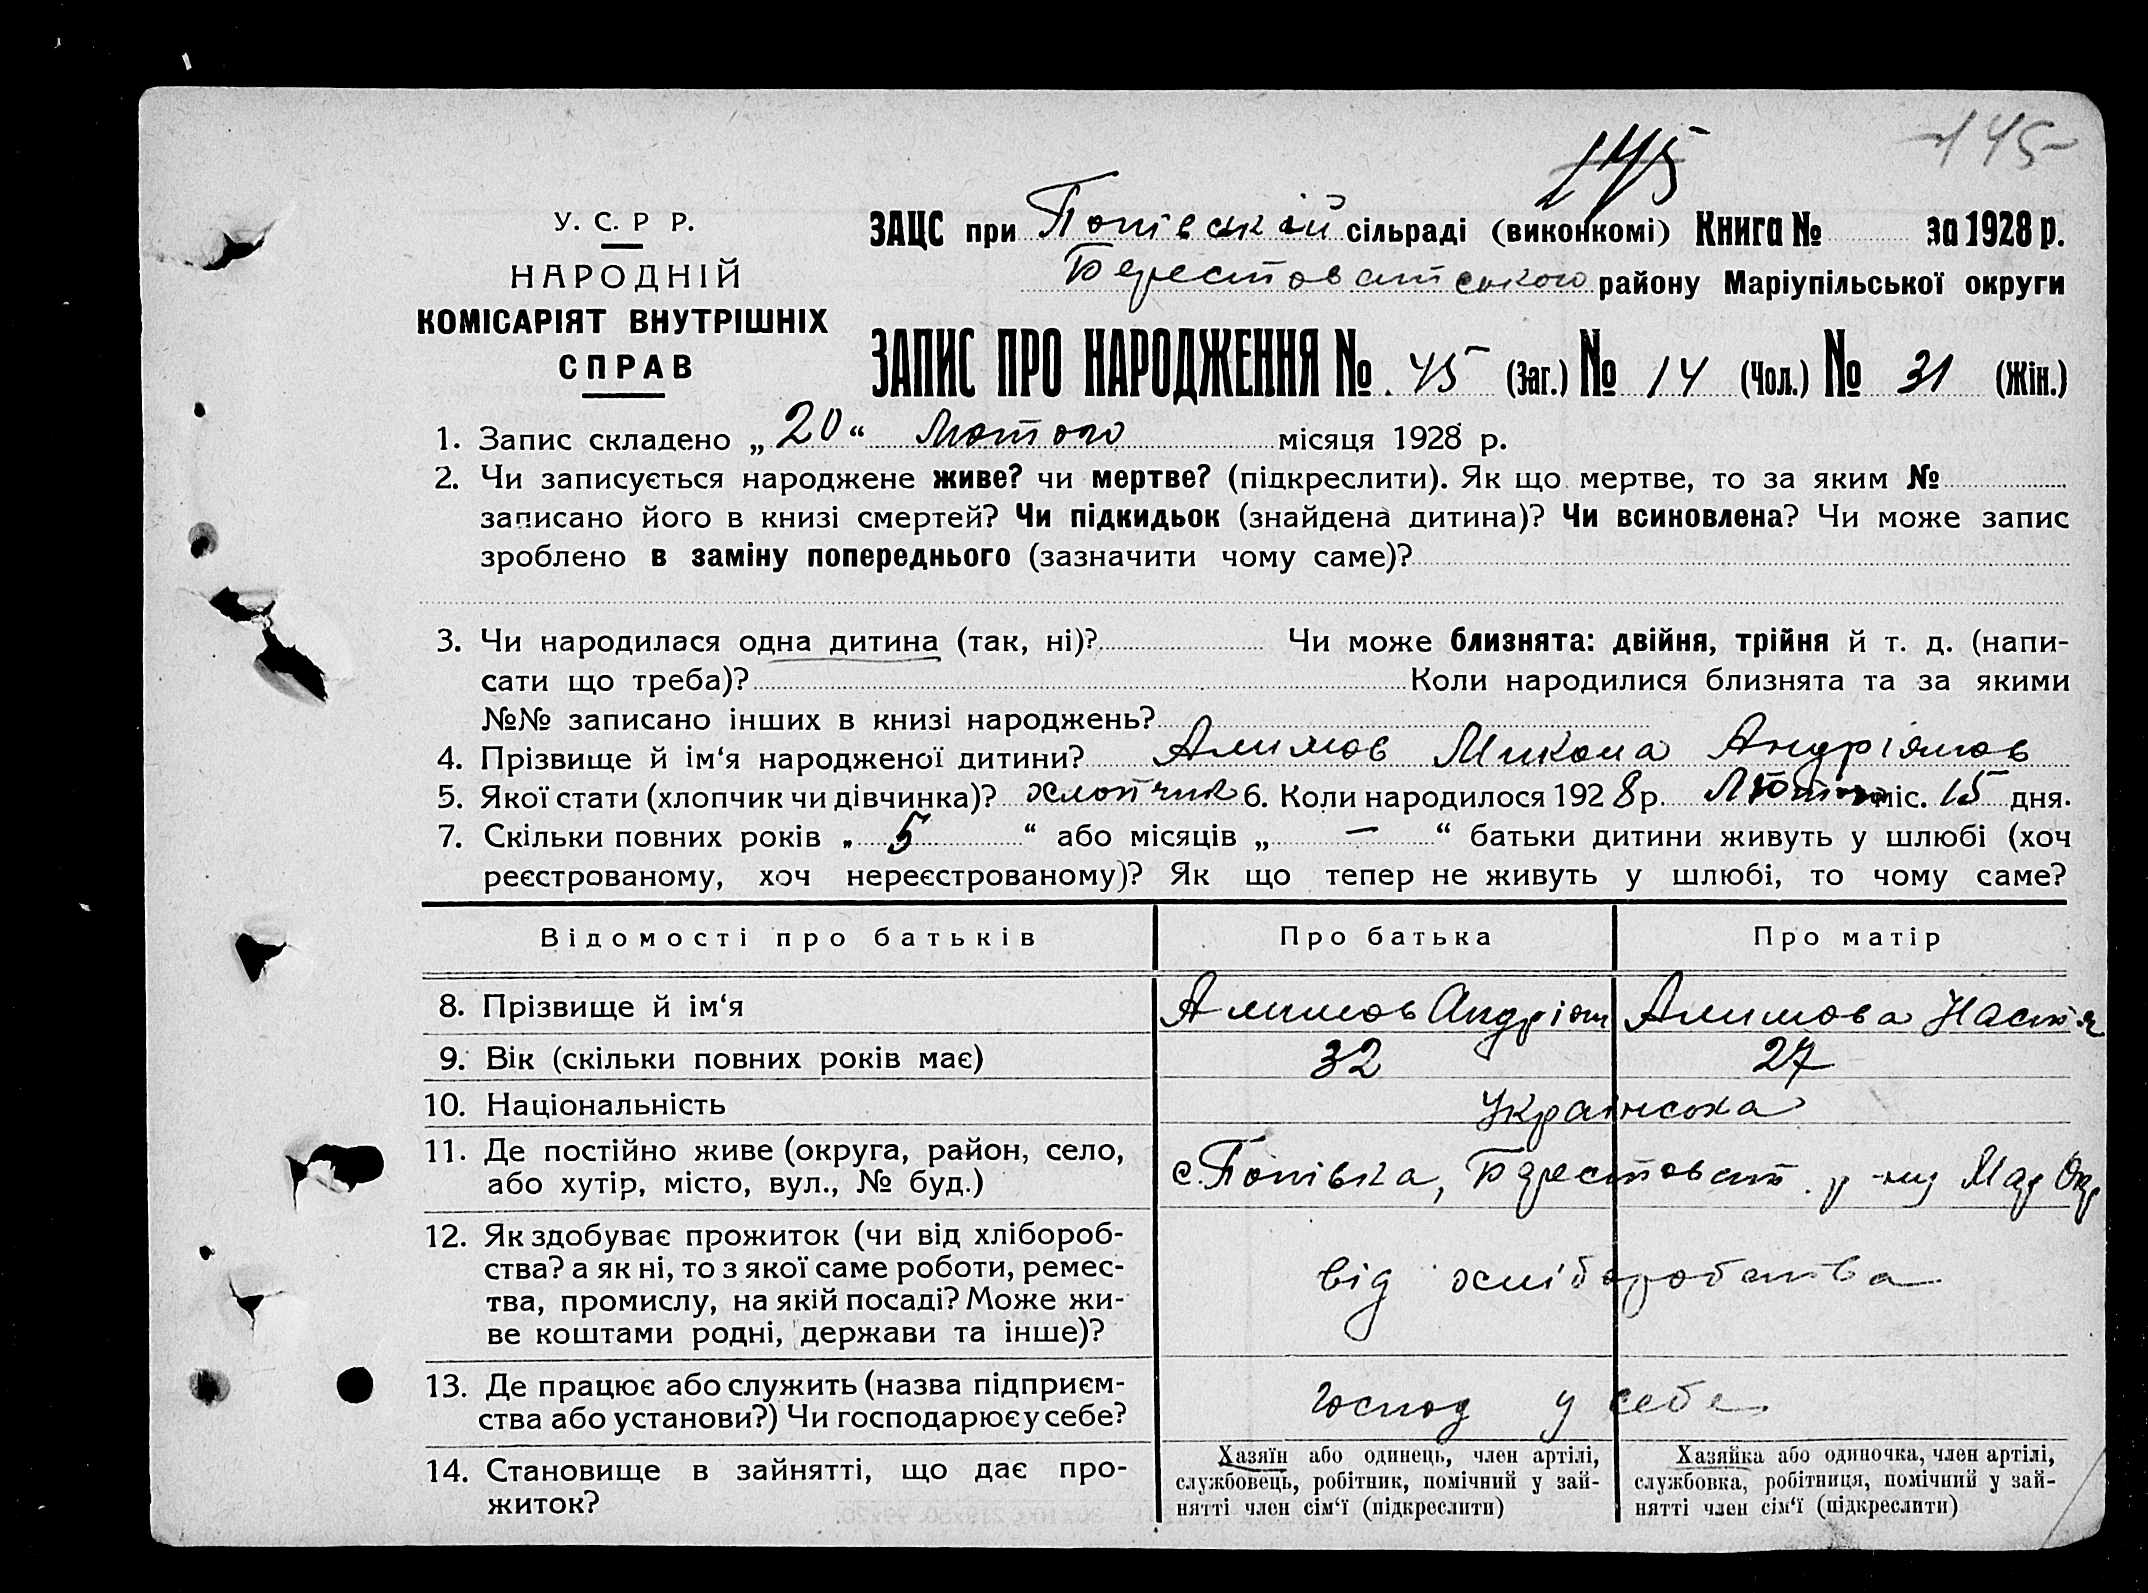 145
145
У. С. Р Р.
НАРОДНІЙ
КОМІСАРІЯТ ВНУТРІШНІХ
СПРАВ
ЗАЦС при Попівській сільраді (виконкомі) Книга № за 1928 р.
Берестоватського району Маріупільської округи
ЗАПИС ПРО НАРОДЖЕННЯ № 45 (Заг.) № 14 (Чол.) № 31 (Жін.)
1. Запис складено „ 20 “ Лютого місяця 1928 р.
2. Чи записується народжене живе? чи мертве? (підкреслити). Як що мертве, то за яким №
записано його в книзі смертей? Чи підкидьок (знайдена дитина)? Чи всиновлена? Чи може запис
зроблено в заміну попереднього (зазначити чому саме)?
3. Чи народилася одна дитина (так, ні)? Чи може близнята: двійня, трійня й т. д. (напи-
сати що треба)? Коли народилися близнята та за якими
№№ записано інших в книзі народжень?
4. Прізвище й ім‘я народженої дитини? Алимов Микола Андріянов
5. Якої стати (хлопчик чи дівчинка)? хлопчик 6. Коли народилося 1928 р. Лютого міс. 15 дня.
7. Скільки повних років „ 5 “ або місяців „ — “ батьки дитини живуть у шлюбі (хоч
реєстрованому, хоч нереєстрованому)? Як що тепер не живуть у шлюбі, то чому саме?
Відомості про батьків Про батька Про матір
8. Прізвище й ім‘я Алимов Андріян Алимова Настя
9. Вік (скільки повних років має) 32 27
10. Національність Українська
11. Де постійно живе (округа, район, село,
або хутір, місто, вул., № буд.) с. Попівка, Берестоват. р-ну Мар Окр
12. Як здобуває прожиток (чи від хлібороб-
ства? а як ні, то з якої саме роботи, ремес-
тва, промислу, на якій посаді? Може жи-
ве коштами родні, держави та інше)?
від хліборобства
13. Де працює або служить (назва підприєм-
ства або установи?) Чи господарює у себе?
господ у себе
14. Становище в зайнятті, що дає про-
житок?
Хазяїн або одинець, член артілі,
службовець, робітник, помічний у зай-
нятті член сім‘ї (підкреслити)
Хазяйка або одиночка, член артілі,
службовка, робітниця, помічний у зай-
нятті член сім‘ї (підкреслити)